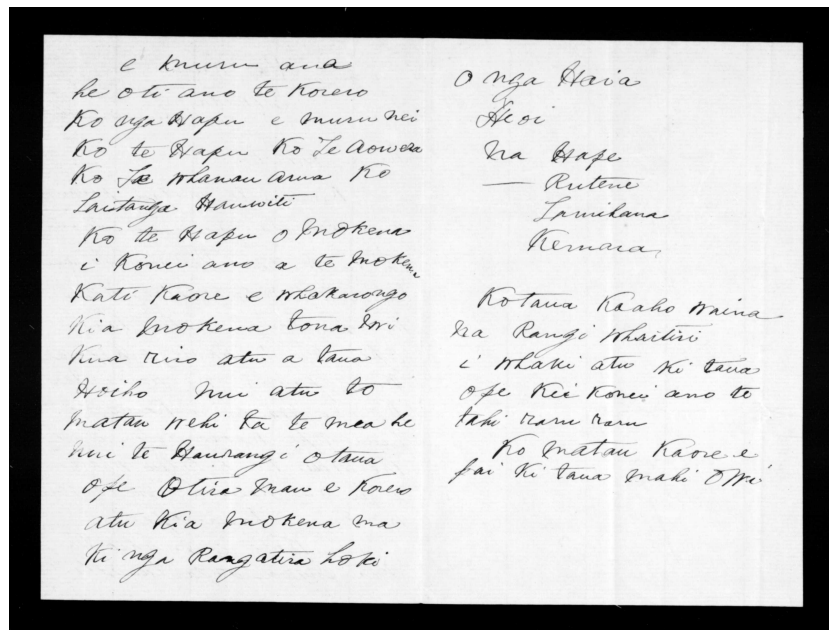 e muru ana
he oti ano te Korero
Ko nga Hapu e muru nei
Ko te Hapu Ko Te Aowera
Ko Te Whanau arua Ko
Taitanga Hauwiti
Ko te Hapu o Mokena
i Konei ano a te Mokena
Kati Kaore e whakarongo
Kia Mokena tona Iwi
Kua riro atu a taua
Hoiho nui atu to
matau wehi ta te mea he
nui te Haurangi o taua
ope Otira mau e Korero
atu Kia Mokena ma
Ki nga Rangatira hoki
O nga Haia
Heoi
Na Hape
— Rutene
Tamihana
Kemara
Ko taua Kaaho Waina
Na Rangi Whaitiri
i Whaki atu Ki taua
ope Kei Konei ano te
tahi raru raru
Ko matau Kaore e
pai Ki taua mahi